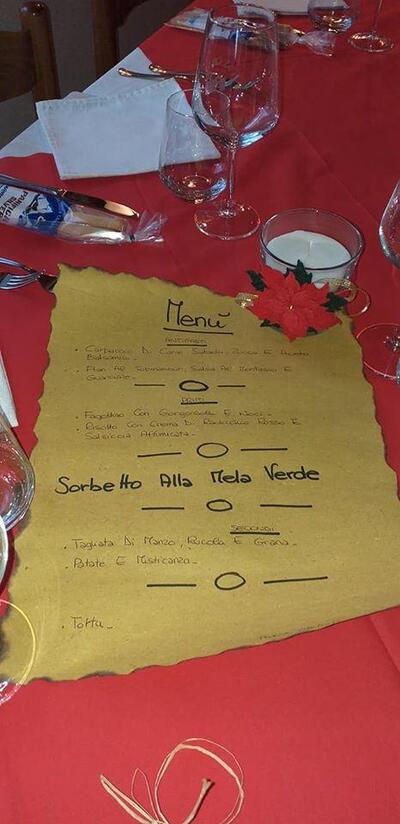 Menù
ANTIPASTI
. Carpaccio Di Carne Salada, Zucca E Aceto
Balsamico -
. Flan Al Topinambur, Salsa Al Formaggio E
Guanciale -
PRIMI
. Fagottino Con Gorgonzola E Noci -
. Risotto Con Crema Di Radicchio Rosso E
Salsiccia Affumicata -
Sorbetto Alla Mela Verde
SECONDI
. Tagliata Di Manzo, Rucola E Grana -
. Patate E Misticanza -
. Torta -